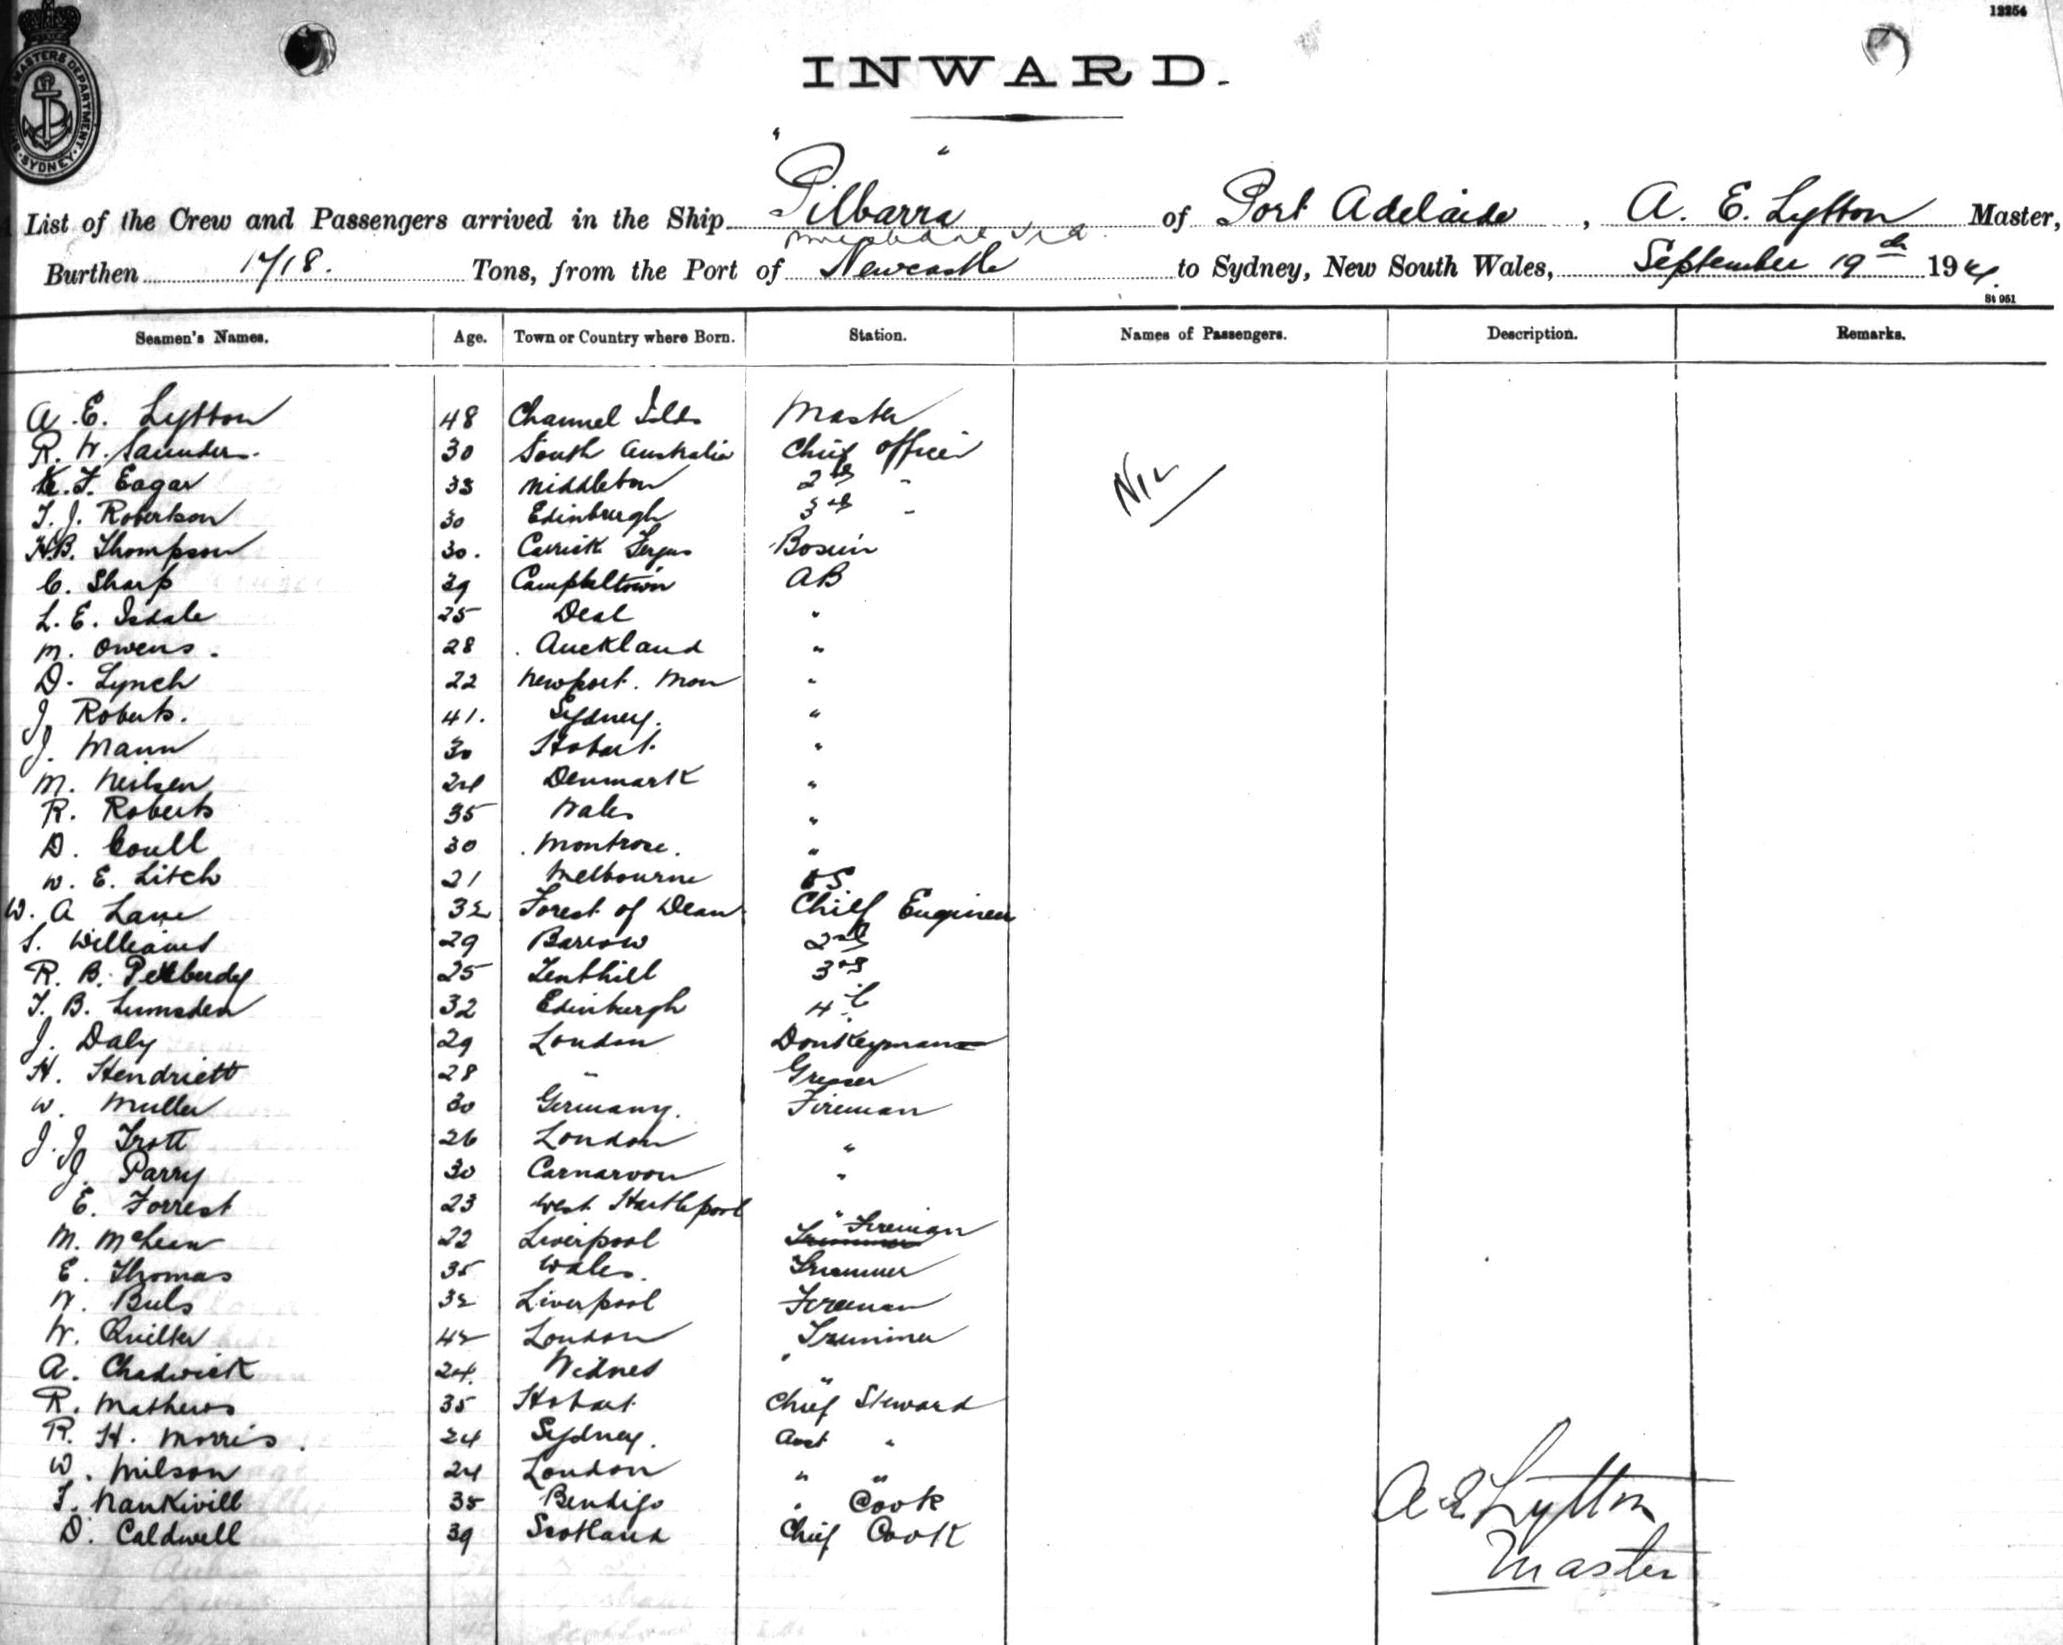 12254
MASTERS DEPARTMENT
SYDNEY
INWARD.
A List of the Crew and Passengers arrived in the Ship "Pilbarra" of Port Adelaide, A. E. Lytton Master,
via
Burthen 1718. Tons, from the Port of Newcastle to Sydney, New South Wales, September 19th 194.
St 951
Seamen's Names. Age. Town or Country where Born. Station. Names of Passengers. Description. Remarks.
A. E. Lytton 48 Channel Islds Master
R. W. Saunders. 30 South Australia Chief Officer
F. Eagar 33 Middleton 2nd "
T. J. Robertson 30 Edinburgh 3rd "
Nil
H.B. Thompson 30. Carrick Fergus Bosun
C. Sharp 39 Campbeltown AB
L. E. Isdale 25 Deal "
M. Owens. 28 Auckland "
D. Lynch 22 Newport. Mon "
J. Roberts. 41. Sydney. "
J. Mann 30 Hobart. "
M. Neilsen 24 Denmark "
R. Roberts 35 Wales "
D. Coull 30 Montrose. "
W. E. Litch 21 Melbourne OS
W. A Lane 32 Forest of Dean Chief Engineer
S. Williams 29 Barrow 2nd
R. B. 25 3rd
T. B. Lumsden 32 Edinburgh 4th
J. Daly 29 London Donkeyman
H. Hendriett 28 " Greaser
W. Muller 30 Germany. Fireman
J. J. Trott 26 London "
J. Parry 30 Carnarvon "
E. Forrest 23 West Hartlepool "
M. McLean 22 Liverpool Trimmer Fireman
E. Thomas 35 Wales. Trimmer
W. Buls 32 Liverpool Fireman
W. Quilter 42 London Trimmer
A. Chadwick 24. Widnes "
R. Mathews 35 Hobart Chief Steward
R. H. Morris. 24 Sydney. Asst "
W. Milson 24 London " "
T. Nankivill 35 Bendigo " Cook
D. Caldwell 39 Scotland Chief Cook
A E Lytton
Master